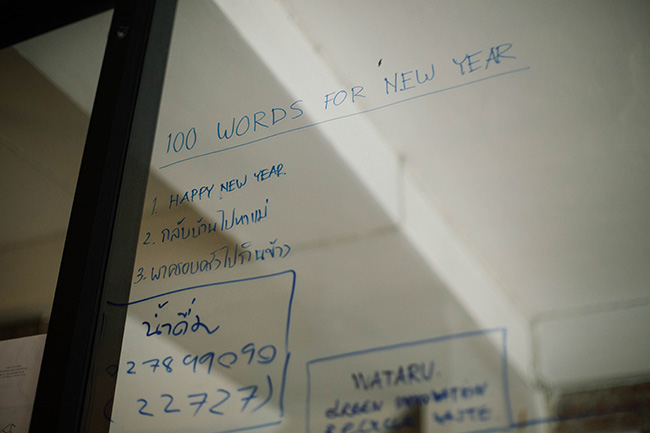 100 WORDS FOR NEW YEAR
1. HAPPY NEW YEAR.
2. กลับบ้านไปหาแม่
3. พาครอบครัวไปกินข้าว
น้ำดื่ม
027899090
(22727)
WATARU.
GREEN INNOVATION
WASTE